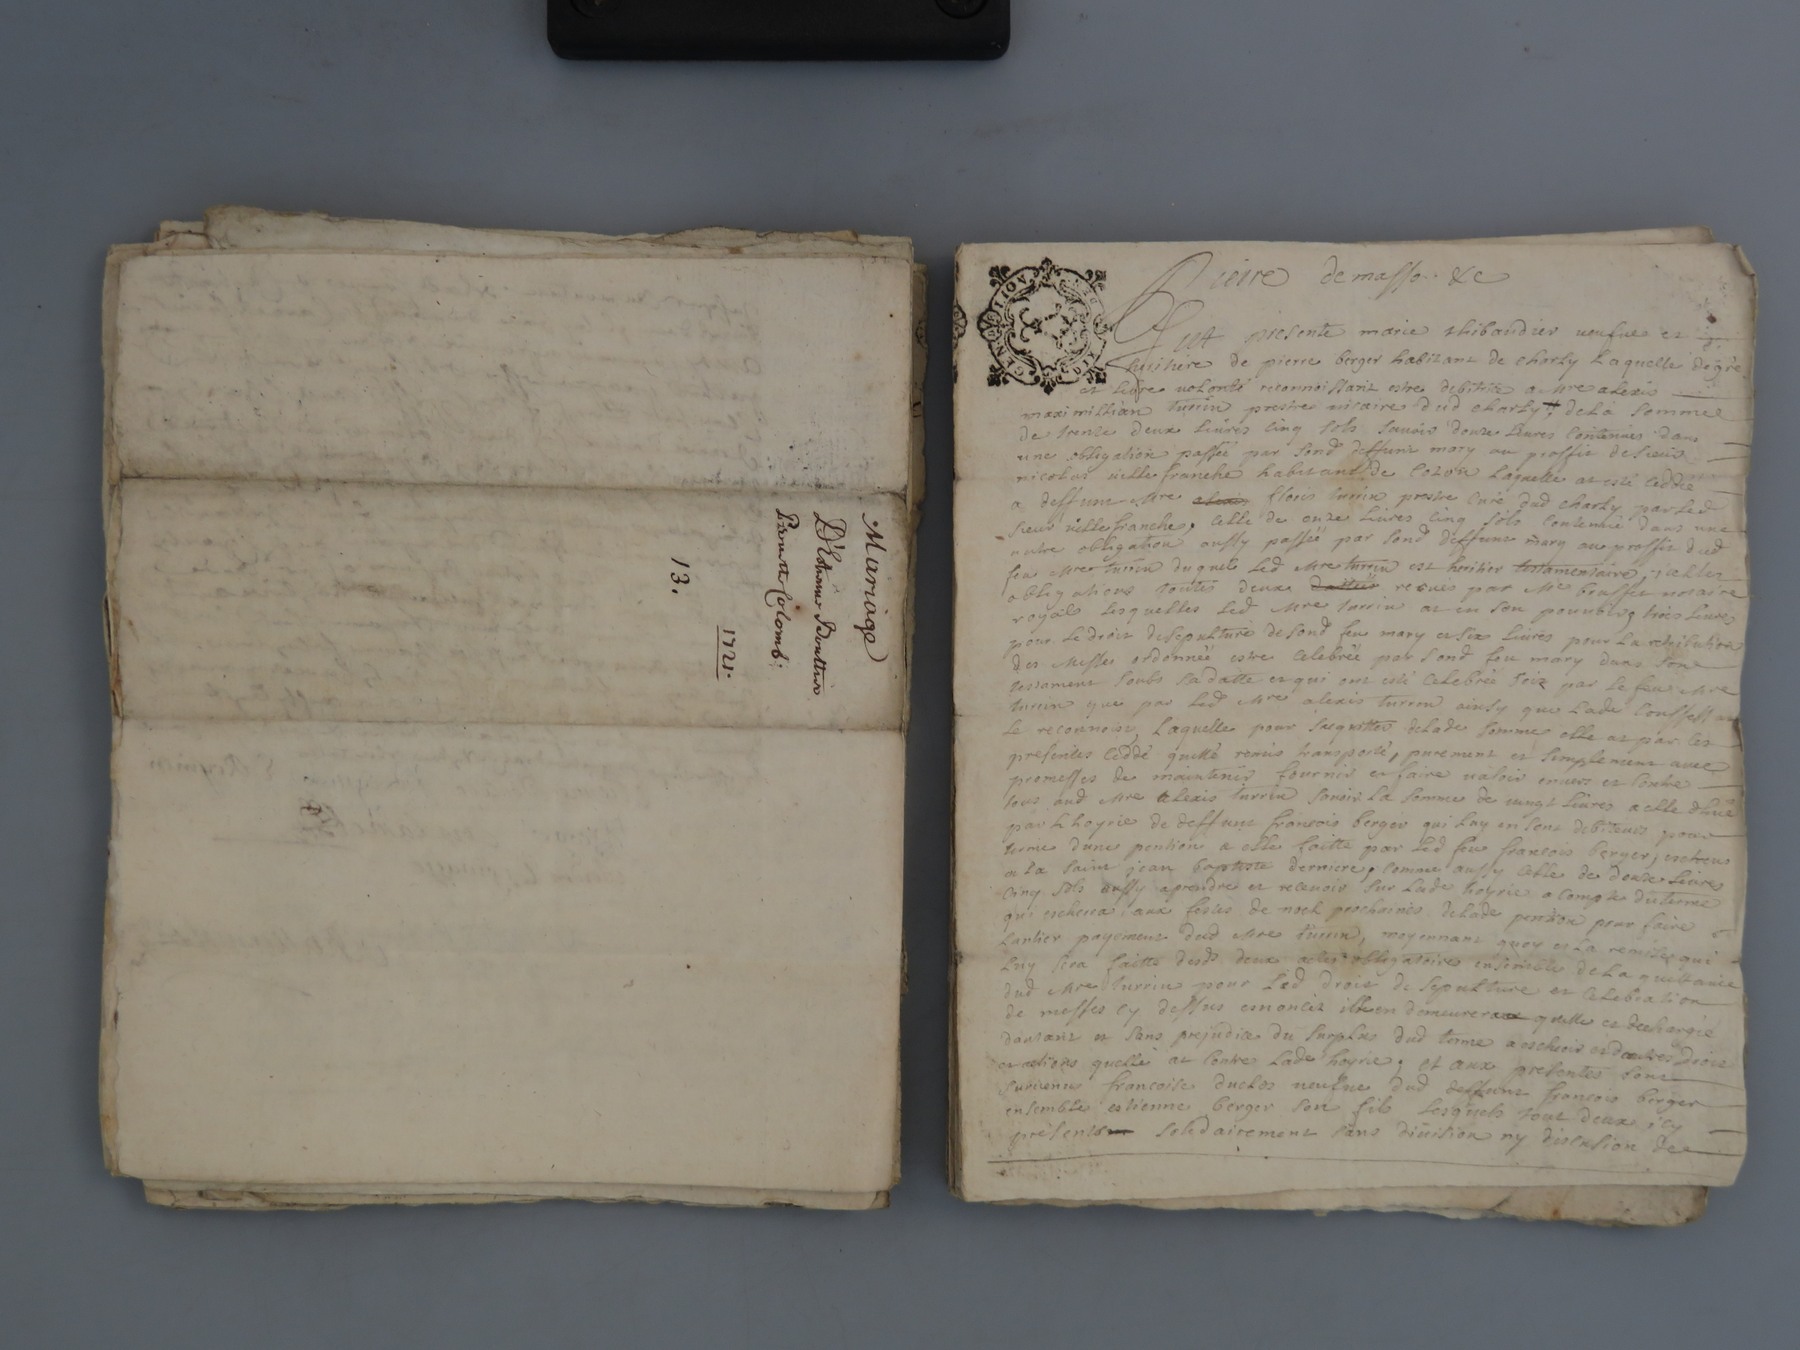 Mariage
D'Estienne Bouttier
Pierrette Colomb
13.
1721.
GENERALITE DE LYON
Pierre de masso &c
Fut presente marie thibaudier veufve et
heritiere de pierre berger habitant de Charly Laquelle de gre
et libre volonté reconnoissant estre debitrice a Mre alexis
maximillian turrin prestre vicaire dud charly, de La somme
de trente deux Livres Cinq sols savoir douze Livres Contenues dans
une obligation passée par sond deffunt mary au proffit de sieur
nicolas villefranche habitant de Lozon Laquelle at esté ceddée
a deffunt Mre floris turrin prestre Curé dud charly par Led
sieur villefranche, Celle de onze Livres Cinq sols Contenue dans une
autre obligation aussy passée par sond deffunt mary au proffit dud
feu Mre turrin duquel Led Mre turrin est heritier testamentaire, icelles
obligations toutes deux receües par Me bouffier notaire
royal Lesquelles Led Mre turrin at en son pouvoir, trois Livres
pour Le droit de sepulture de sond feu mary et six Livres pour La retribution
des Messe ordonnée estre Celebrée par sond feu mary dans son
testament soubs sa datte et qui ont esté Celebrée par Le feu Mre
turrin que par Led Mre alexis turrin ainsy que Lade Confessant
Le reconnoist, Laquelle pour s'acquitter de lade somme elle at par les
presentes Ceddé quitté remis transporté, purement et simplement avec
promesses de maintenir fournir et faire valoir envers et Contre
tous aud Mre alexis turrin savoir La somme de vingt Livres a elle deüe
par L'hoyrie de deffunt francois berger qui Luy en sont debiteurs pour
terme d'une pention a elle faitte par Led feu francois berger, escheu
a La saint jean baptiste derniere, comme aussy Celle de douze Livres
Cinq sols aussy a prendre et recevoir sur Lade hoyrie a compte du terme
qui eschera aux festes de noel prochaines de Lade pention pour faire
L'antier payement dud Mre turrin, moyennant quoy et La remise qui
Luy sera faitte desds deux actes obligatoires ensemble de La quittance
dud Mre turrin pour Led droit de sepulture et Celebration
de messes Cy dessus enoncés en demeurera quitte et dechargée
d'autant et sans prejudice du surplus dud terme a escheoir et d'autres droits
et actions quelle at Contre Lade hoyrie, et aux presentes sont
survenus francoise duclos veufve dud deffunt francois berger
ensemble estienne berger son fils Lesquels tout deux icy
présents solidairement sans division ny discution de